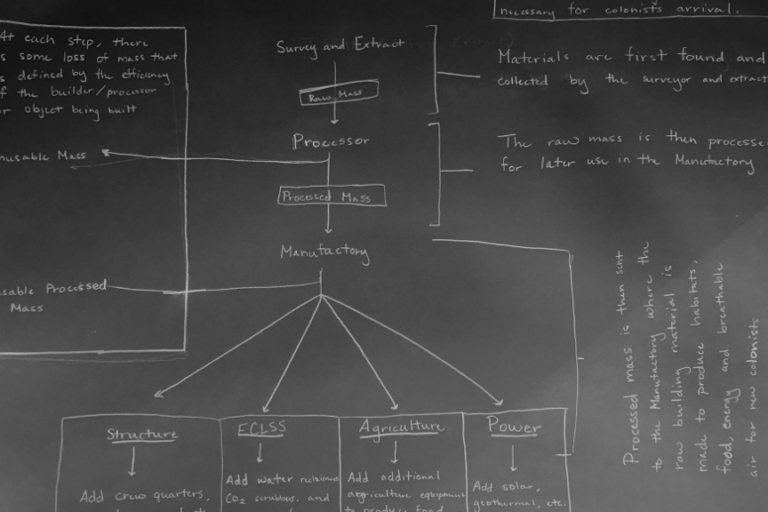 necessary for colonists arrival.
At each step, there
some loss of mass that
defined by the efficiency
the builder/processor
object being built
Mass
Processed
Mass
Survey and Extract
Raw Mass
Processor
Processed Mass
Manufactory
Materials are first found and
collected by the surveyor and
The raw mass is then
for later use in the Manufactory
Processed mass is then sent
to the Manufactory where the
raw building material is
made to produce habitats,
food, energy and breathable
air for new colonists
Structure
Add crew quarters,
ECLSS
Add water
CO2 scrubbers, and
Agriculture
Add additional
agriculture
to produce food
Power
Add solar,
geothermal, etc.